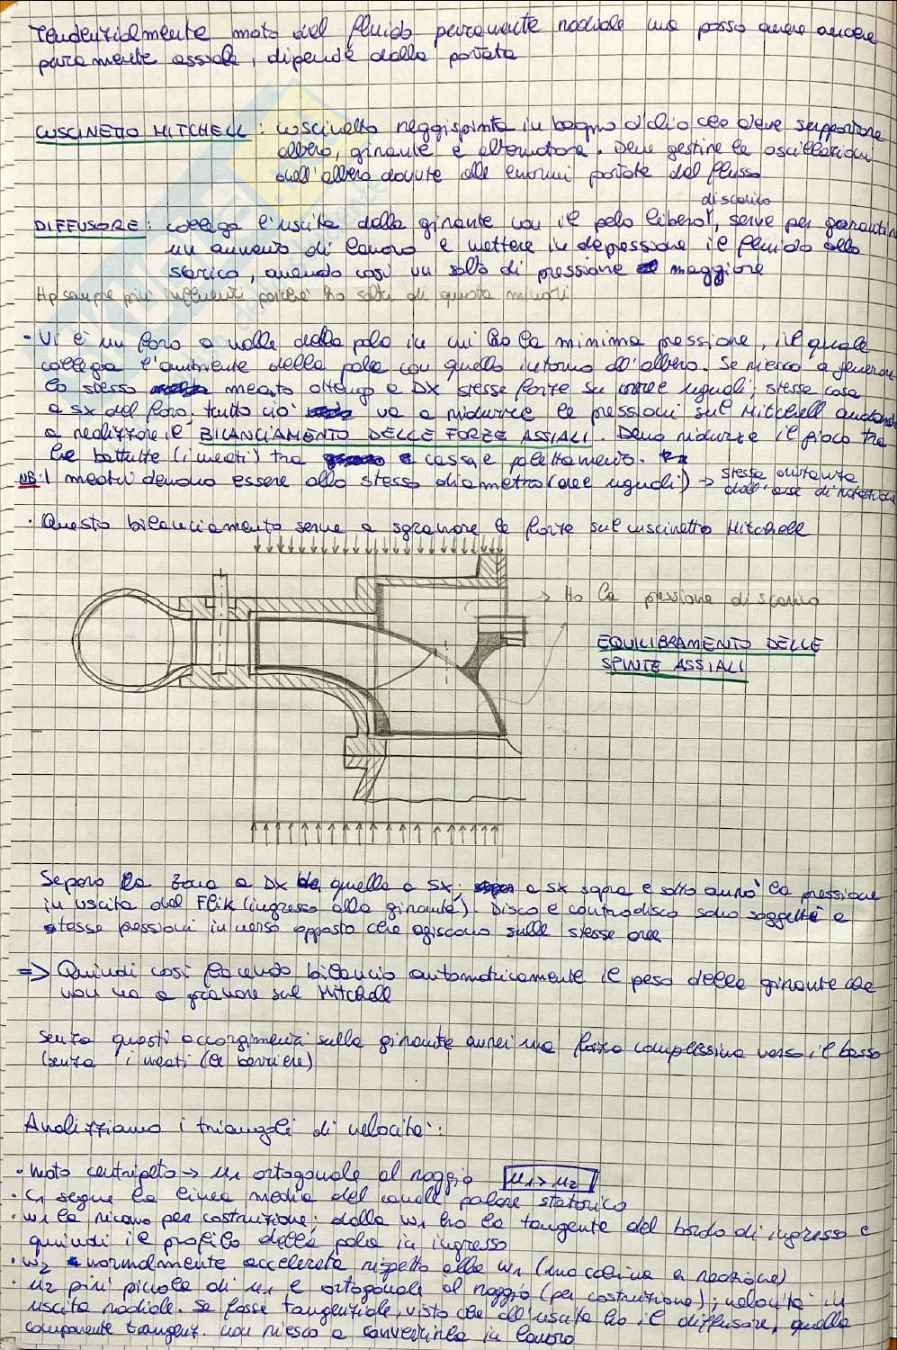 Tendenzialmente moto del fluido puramente radiale ma posso avere ancora
puramente assiale, dipende dalla portata
CUSCINETTO MITCHELL: cuscinetto reggispinta in bagno d'olio che deve supportare
albero, girante e alternatore. Deve gestire le oscillazioni
dell'albero dovute alle enormi portate del flusso
di scarico
DIFFUSORE: collega l'uscita della girante con il pelo libero, serve per garantire
un aumento di lavoro e mettere in depressione il fluido allo
scarico, avendo così un salto di pressione maggiore
Hp sempre più influenti perché ho salti di quota minori
• Vi è un foro a valle della pala in cui ho la minima pressione, il quale
collega l'ambiente della pala con quello intorno all'albero. Se riesco a generare
lo stesso meato ottengo a DX stesse forze su aree uguali; stessa cosa
a sx del foro. tutto ciò va a ridurre le pressioni sul Mitchell andando
a realizzare il BILANCIAMENTO DELLE FORZE ASSIALI. Devo ridurre il gioco tra
le battute (i meati) tra cassa e palettamento.
NB: I meati devono essere allo stesso diametro (aree uguali) → stessa distanza
dall'asse di rotazione
• Questo bilanciamento serve a sgravare le forze sul cuscinetto Mitchell
→ Ho la pressione di scarico
EQUILIBRAMENTO DELLE
SPINTE ASSIALI
Separo la zona a DX da quella a SX; a SX sopra e sotto avrò la pressione
in uscita dal Fink (ingresso alla girante). Disco e controdisco sono soggetti a
stesse pressioni in verso opposto che agiscono sulle stesse aree
=> Quindi così facendo bilancio automaticamente il peso della girante che
non va a gravare sul Mitchell
Senza questi accorgimenti sulla girante avrei una forza complessiva verso il basso
(senza i meati (le barriere)
Analizziamo i triangoli di velocità:
• moto centripeto → u₁ ortogonale al raggio u₁ > u₂
• c₁ segue la linea media del canale palare statorico
• w₁ la ricavo per costruzione; dalla w₁ ho la tangente del bordo di ingresso e
quindi il profilo della pala in ingresso
• w₂ normalmente accelerata rispetto alla w₁ (macchina a reazione)
• u₂ più piccola di u₁ e ortogonale al raggio (per costruzione); velocità in
uscita radiale. Se fosse tangenziale, visto che all'uscita ho il diffusore, quella
componente tangenz. non riesco a convertirla in lavoro